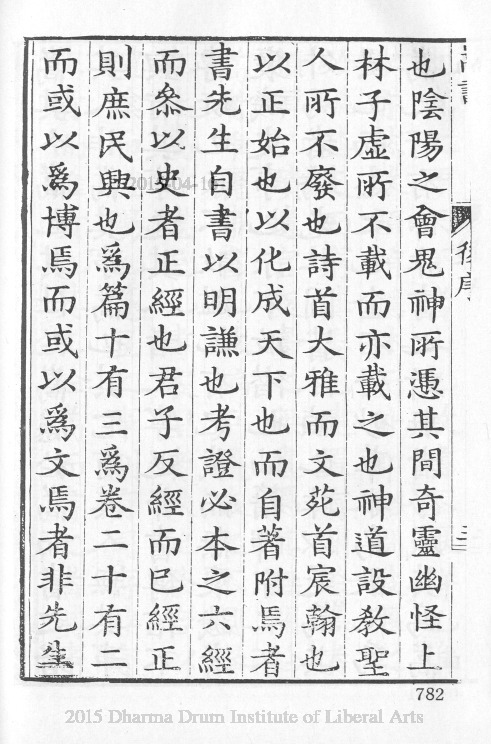 後序
也陰陽之會鬼神所憑其間奇靈幽怪上
林子虛所不載而亦載之也神道設教聖
人所不廢也詩首大雅而文苑首宸翰也
以正始也以化成天下也而自著附焉者
書先生自書以明謙也考證必本之六經
而叅以史者正經也君子反經而已經正
則庶民興也爲篇十有三爲卷二十有二
而或以爲博焉而或以爲文焉者非先生
2015-04-1
782
2015 Dharma Drum Institute of Liberal Arts